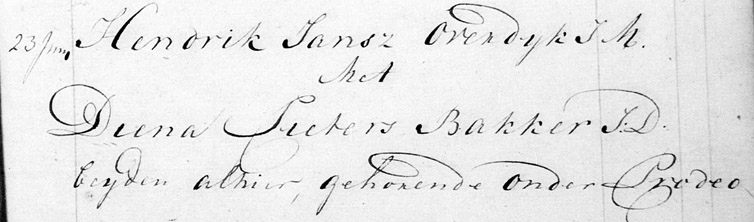 23 Juny Hendrik Jansz Overdyk J M.
Met
Diena Pieters Bakker J.D.
beyden alhier, gehorende onder Prodeo